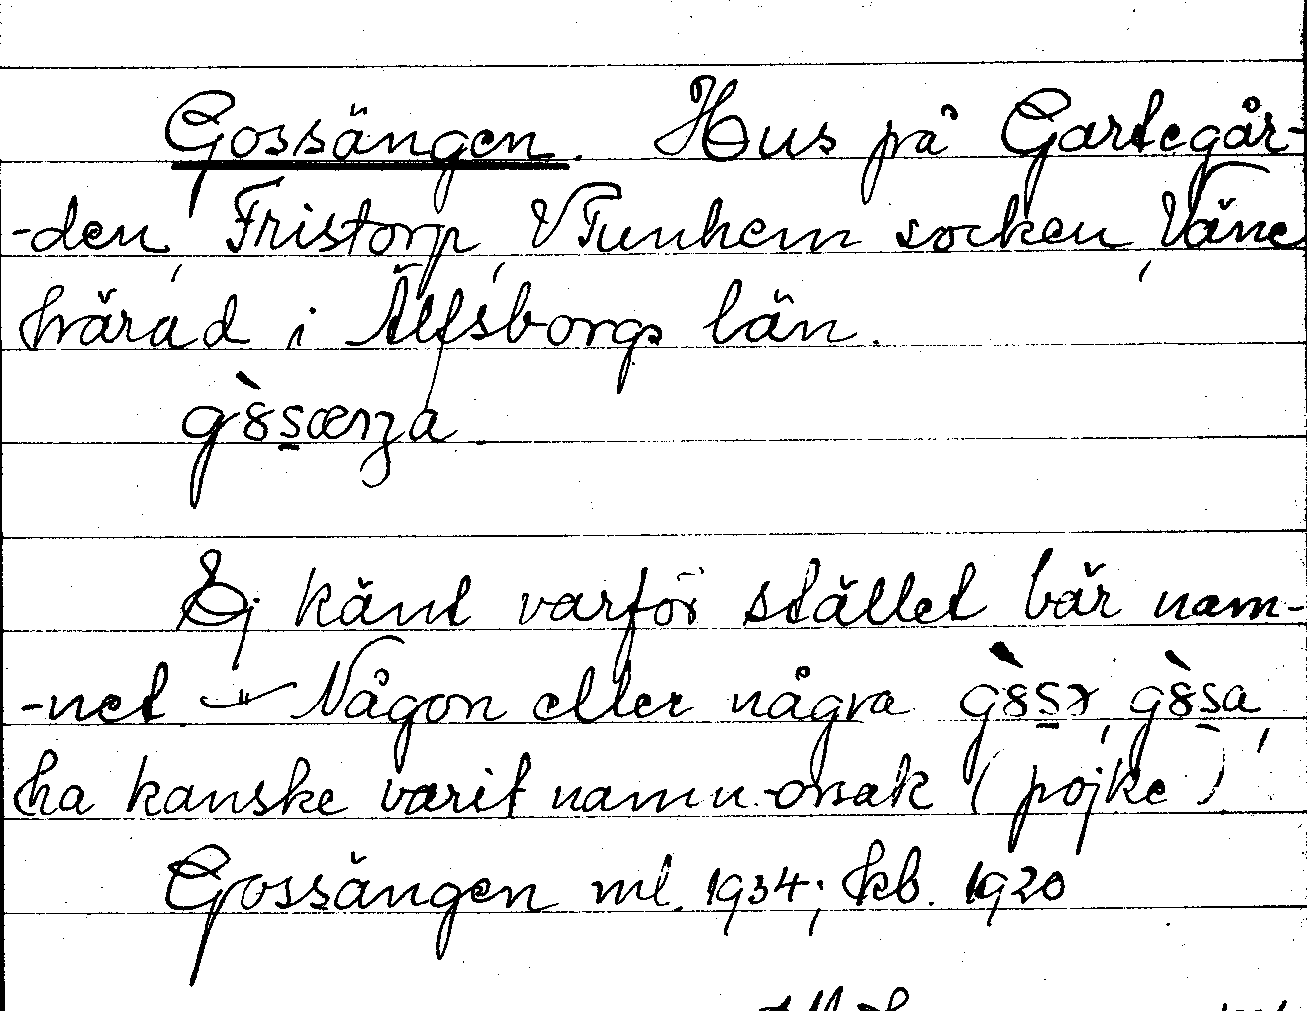 Gossängen. Hus på Gartegår-
-den, Fristorp, VTunhem socken, Väne
härad i Älfsborgs län.
Ej känt varför stället bär nam-
-net. Någon eller några
ha kanske varit namn-orsak (pojke)
Gossängen ml. 1934; kb. 1920